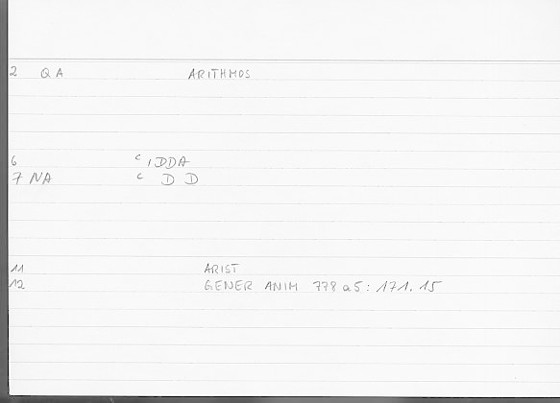 2 QA ARITHMOS
6 ᶜIDDA
7 NA ᶜ D D
11 ARIST
12 GENER ANIM 778 a5: 171.15